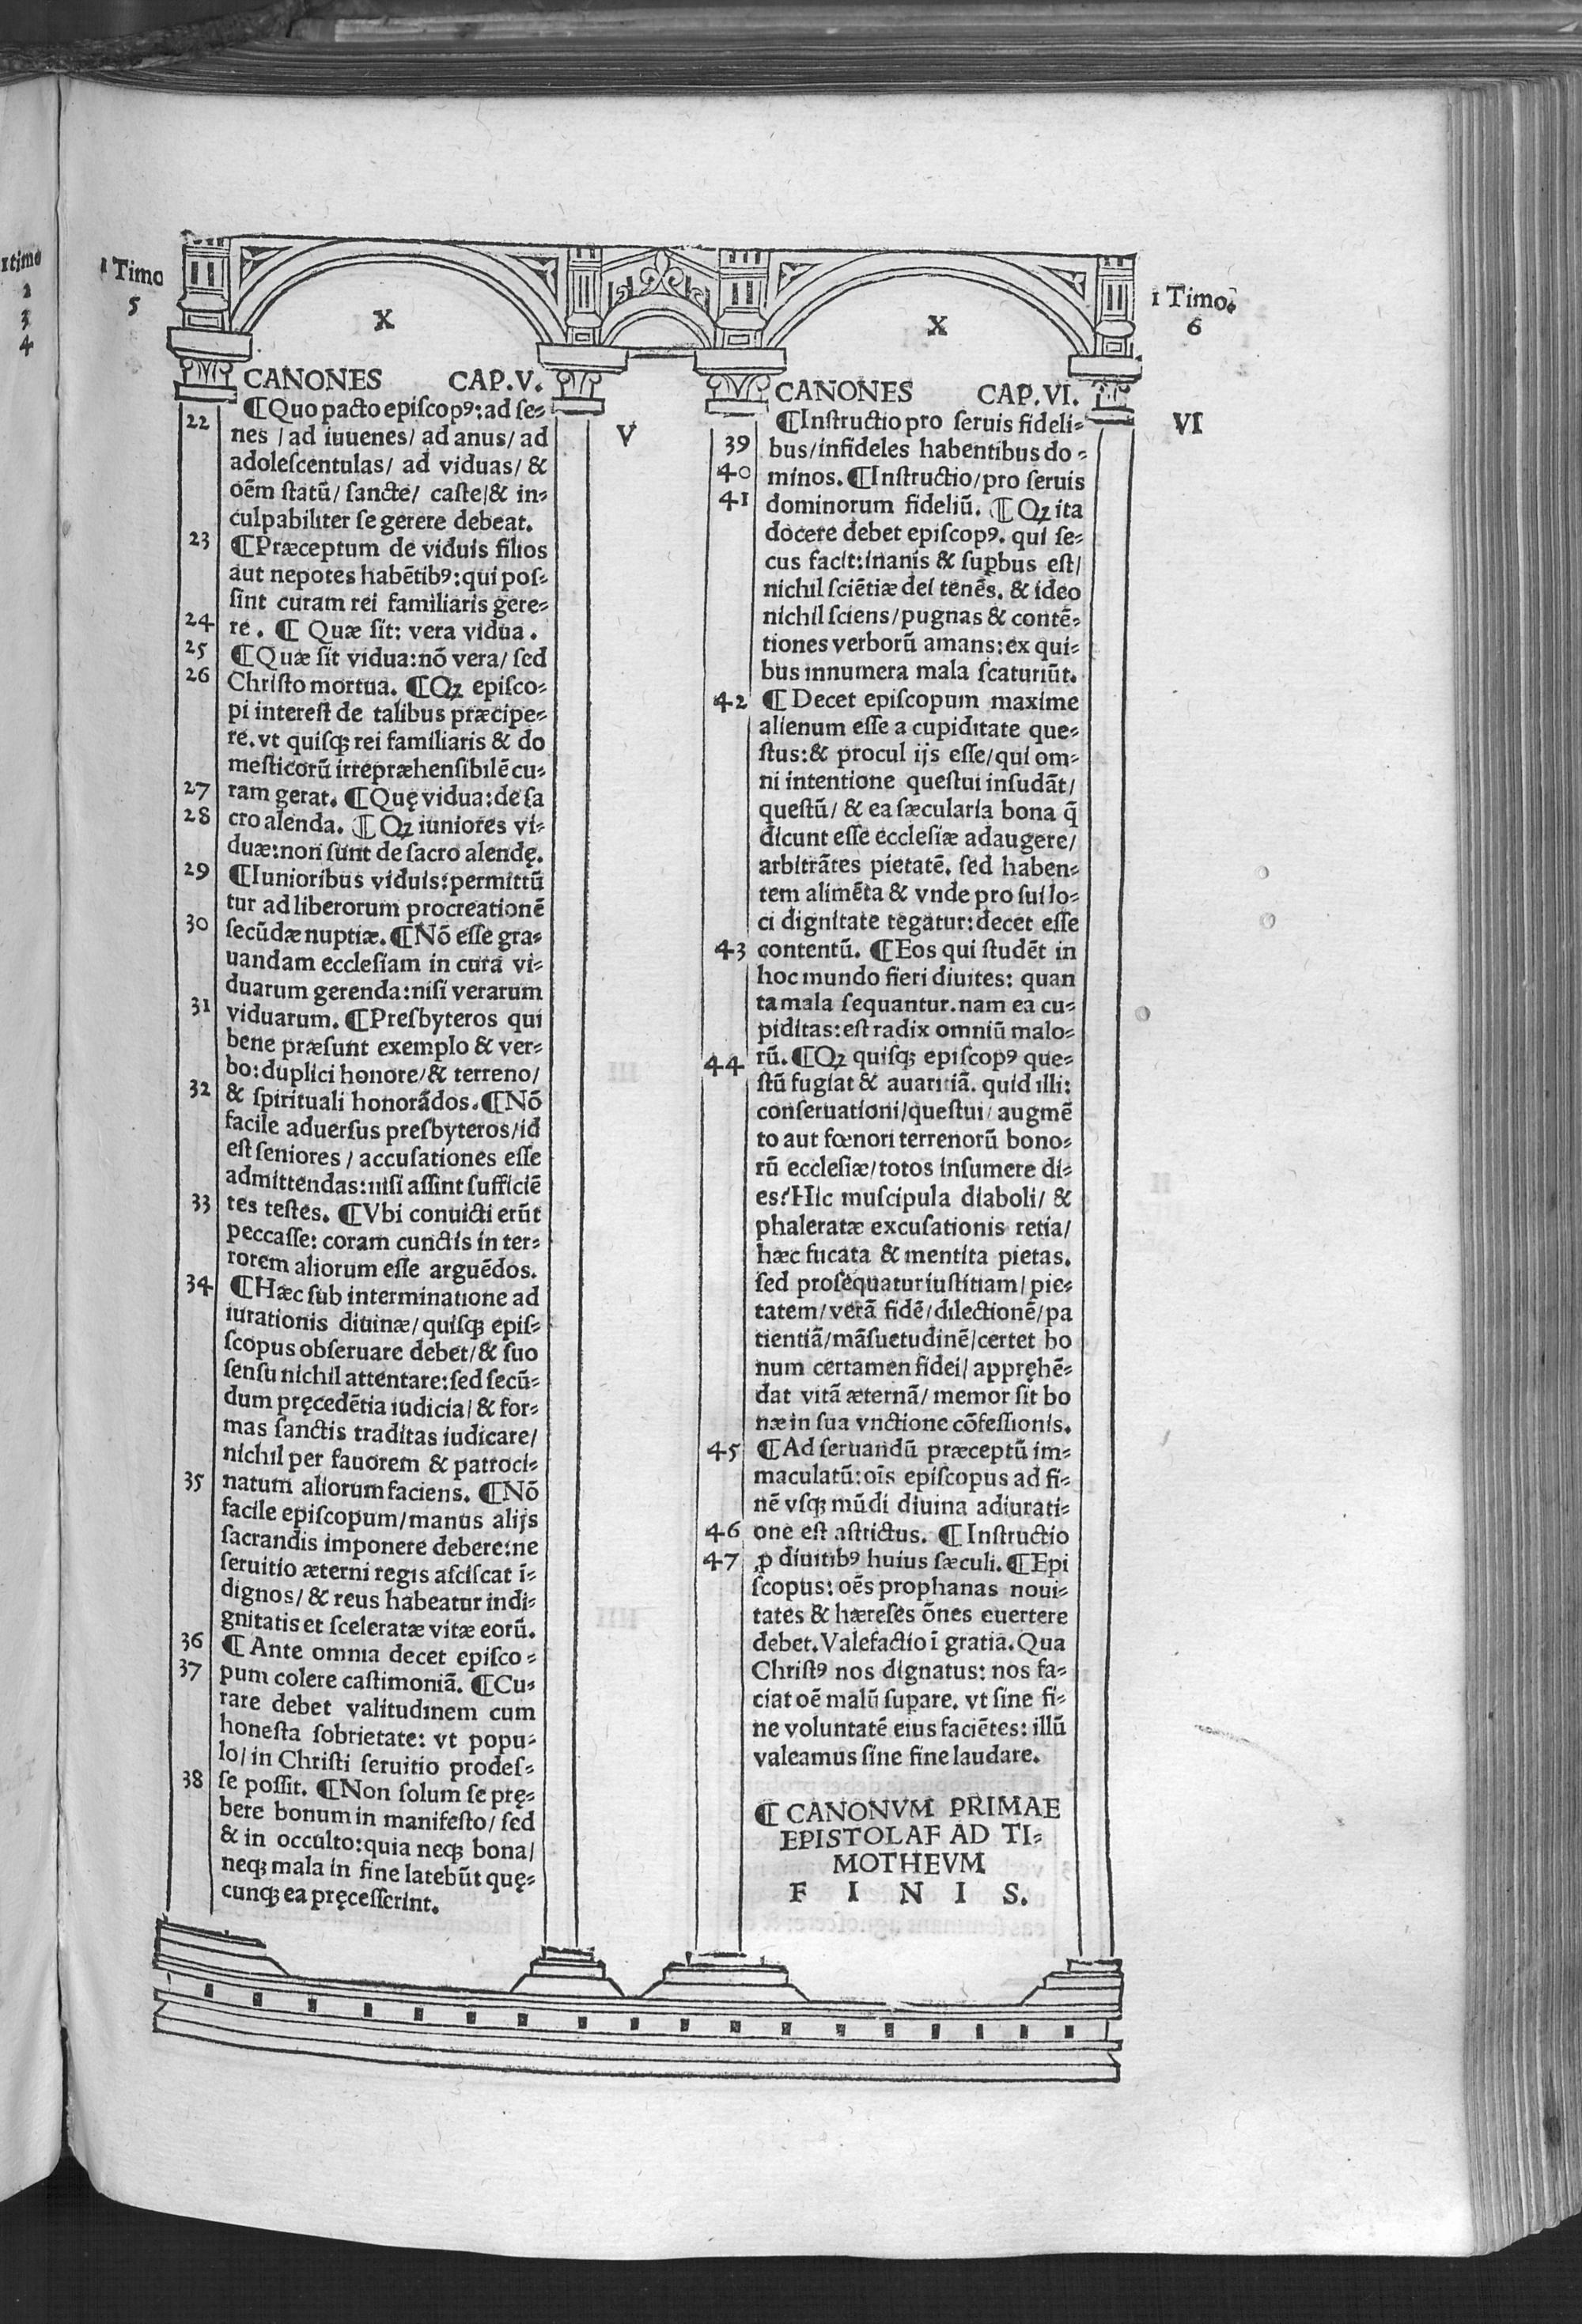 1 timo
2
3
4
1 Timo
5
X
CANONES CAP.V.
22
V
¶Quo pacto episcopꝰ: ad se⸗
nes / ad iuuenes / ad anus / ad
adolescentulas / ad viduas / &
oēm statū / sancte / caste / & in⸗
culpabiliter se gerere debeat.
23 ¶Præceptum de viduis filios
aut nepotes habētibꝰ: qui pos⸗
sint curam rei familiaris gere⸗
24 re. ¶ Quæ sit: vera vidua.
25 ¶Quæ sit vidua: nō vera / sed
26 Christo mortua. ¶Qꝫ episco⸗
pi interest de talibus præcipe⸗
re. vt quisqꝫ rei familiaris & do
mesticorū irrepræhensibilē cu⸗
27 ram gerat. ¶Quę vidua: de sa
28 cro alenda. ¶Qꝫ iuniores vi⸗
duæ: non sunt de sacro alendę.
29 ¶Iunioribus viduis: permittū
tur ad liberorum procreationē
30 secūdæ nuptiæ. ¶Nō esse gra⸗
uandam ecclesiam in cura vi⸗
duarum gerenda: nisi verarum
31 viduarum. ¶Presbyteros qui
bene præsunt exemplo & ver⸗
bo: duplici honore / & terreno /
32 & spirituali honorādos. ¶Nō
facile aduersus presbyteros / id
est seniores / accusationes esse
admittendas: nisi assint sufficiē
33 tes testes. ¶Vbi conuicti erūt
peccasse: coram cunctis in ter⸗
rorem aliorum esse arguēdos.
34 ¶Hæc sub interminatione ad
iurationis diuinæ / quisqꝫ epis⸗
scopus obseruare debet / & suo
sensu nichil attentare: sed secū⸗
dum pręcedētia iudicia / & for⸗
mas sanctis traditas iudicare /
nichil per fauorem & patroci⸗
35 natum aliorum faciens. ¶Nō
facile episcopum / manus alijs
sacrandis imponere debere: ne
seruitio æterni regis asciscat ī⸗
dignos / & reus habeatur indi⸗
gnitatis et sceleratæ vitæ eorū.
36 ¶Ante omnia decet episco⸗
37 pum colere castimoniā. ¶Cu⸗
rare debet valitudinem cum
honesta sobrietate: vt popu⸗
lo / in Christi seruitio prodes⸗
38 se possit. ¶Non solum se prę⸗
bere bonum in manifesto / sed
& in occulto: quia neqꝫ bona /
neqꝫ mala in fine latebūt quę⸗
cunqꝫ ea pręcesserint.
1 Timo.
6
X
CANONES CAP.VI.
VI
¶Instructio pro seruis fideli⸗
39 bus / infideles habentibus do⸗
40 minos. ¶Instructio / pro seruis
41 dominorum fideliū. ¶Qꝫ ita
docere debet episcopꝰ. qui se⸗
cus facit: inanis & suꝑbus est /
nichil sciētiæ dei tenēs. & ideo
nichil sciens / pugnas & contē⸗
tiones verborū amans: ex qui⸗
bus innumera mala scaturiūt.
42 ¶Decet episcopum maxime
alienum esse a cupiditate que⸗
stus: & procul ijs esse / qui om⸗
ni intentione questui insudāt /
questū / & ea sæcularia bona q̄
dicunt esse ecclesiæ adaugere /
arbitrātes pietatē. sed haben⸗
tem alimēta & vnde pro sui lo⸗
ci dignitate tegatur: decet esse
43 contentū. ¶Eos qui studēt in
hoc mundo fieri diuites: quan
ta mala sequantur. nam ea cu⸗
piditas: est radix omniū malo⸗
44 rū. ¶Qꝫ quisqꝫ episcopꝰ que⸗
stū fugiat & auaritiā. quid illi:
conseruationi / questui / augmē
to aut fœnori terrenorū bono⸗
rū ecclesiæ / totos insumere di⸗
es? Hic muscipula diaboli / &
phaleratæ excusationis retia /
hæc fucata & mentita pietas.
sed prosequatur iustitiam / pie⸗
tatem / verā fidē / dilectionē / pa
tientiā / māsuetudinē / certet bo
num certamen fidei / appręhē⸗
dat vitā æternā / memor sit bo
næ in sua vnctione cōfessionis.
45 ¶Ad seruandū præceptū im⸗
maculatū: oīs episcopus ad fi⸗
nē vsqꝫ mūdi diuina adiurati⸗
46 one est astrictus. ¶Instructio
47 ꝓ diuitibꝰ huius sæculi. ¶Epi
scopus: oēs prophanas noui⸗
tates & hæreses ōnes euertere
debet. Valefactio ī gratia. Qua
Christꝰ nos dignatus: nos fa⸗
ciat oē malū suꝑare. vt sine fi⸗
ne voluntatē eius faciētes: illū
valeamus sine fine laudare.
¶CANONVM PRIMAE
EPISTOLAE AD TI⸗
MOTHEVM
F I N I S.